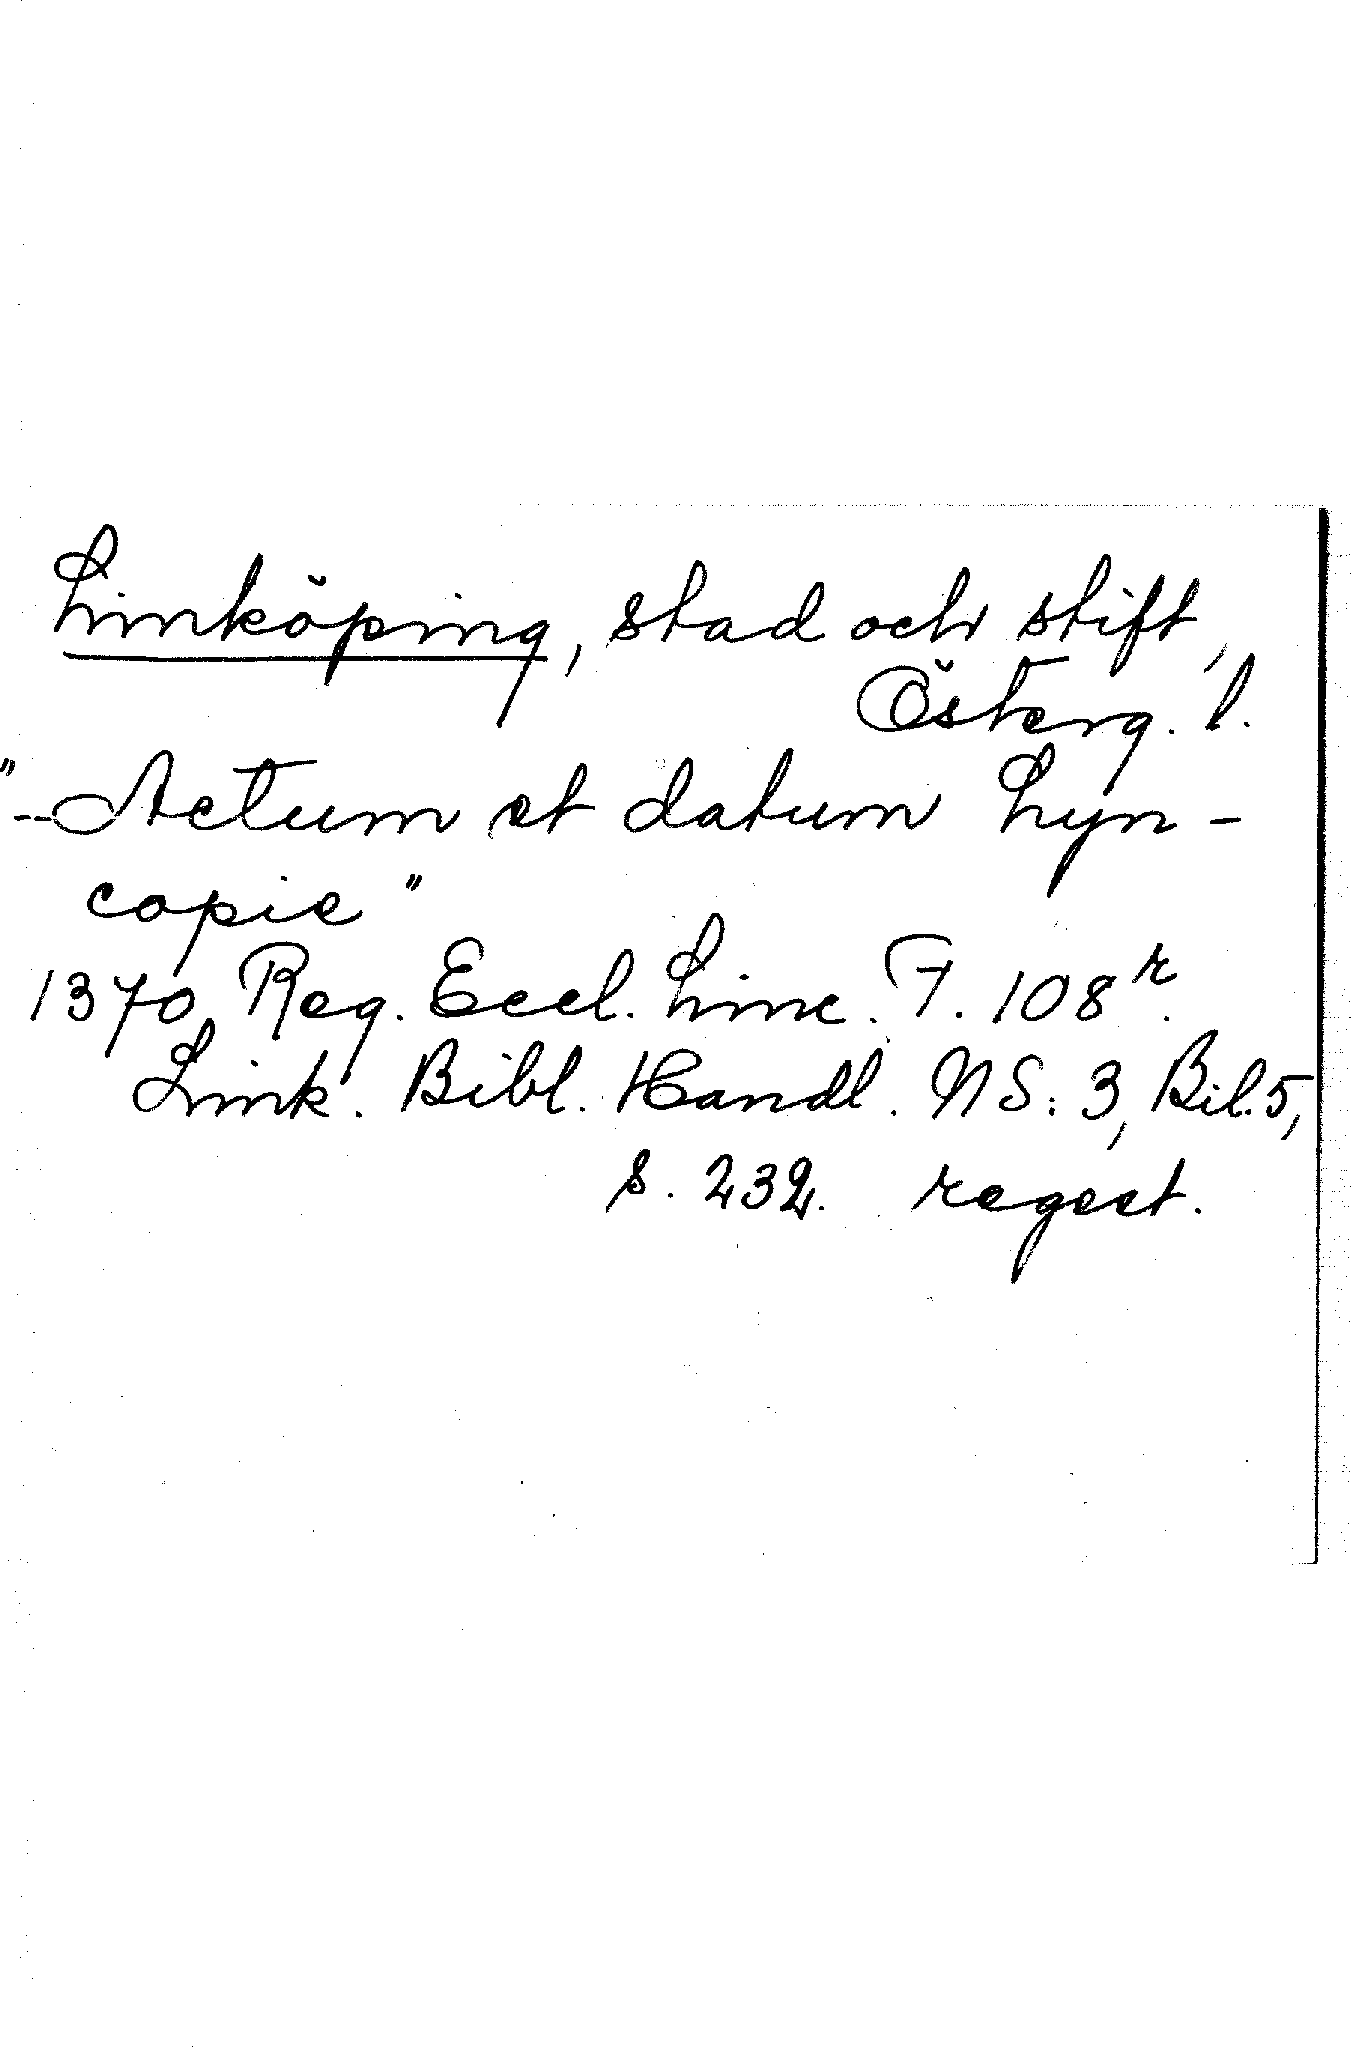 Linköping, stad och stift,
Österg. l.
"--Actum et datum Lyn-
copie"
1370 Reg. Eccl. Linc. F. 108r.
Link. Bibl. Handl. NS: 3, Bil. 5,
s. 232. regest.